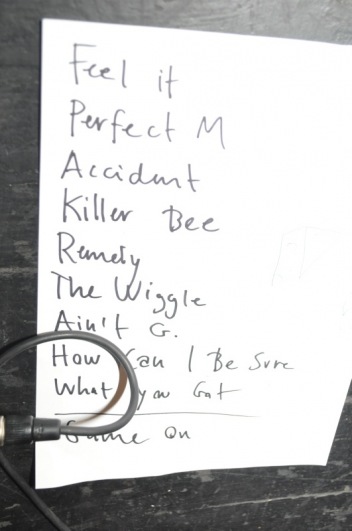 Feel it
Perfect M
Accident
Killer Bee
Remedy
The Wiggle
Ain't G.
How Can I Be Sure
What you Got
Game On